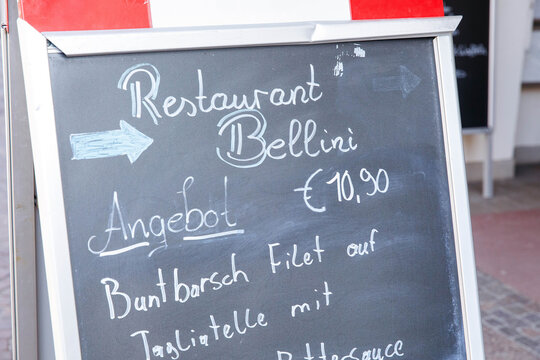 Restaurant
Bellini
Angebot € 10,90
Buntbarsch Filet auf
Tagliatelle mit